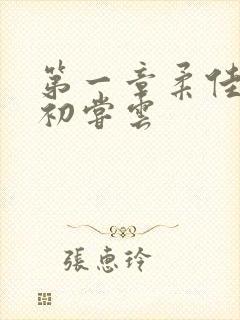 第一章柔佳
初嘗雲
張惠玲